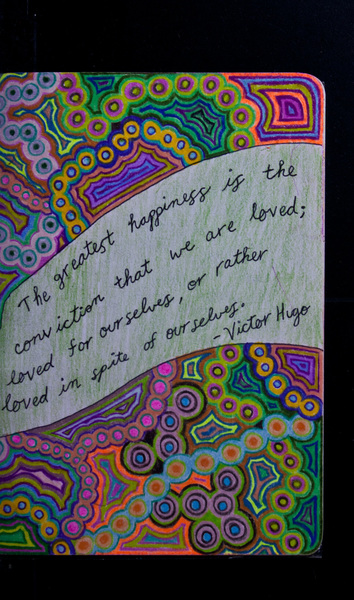 The greatest happiness is the
conviction that we are loved;
loved for ourselves, or rather
loved in spite of ourselves.
-Victor Hugo